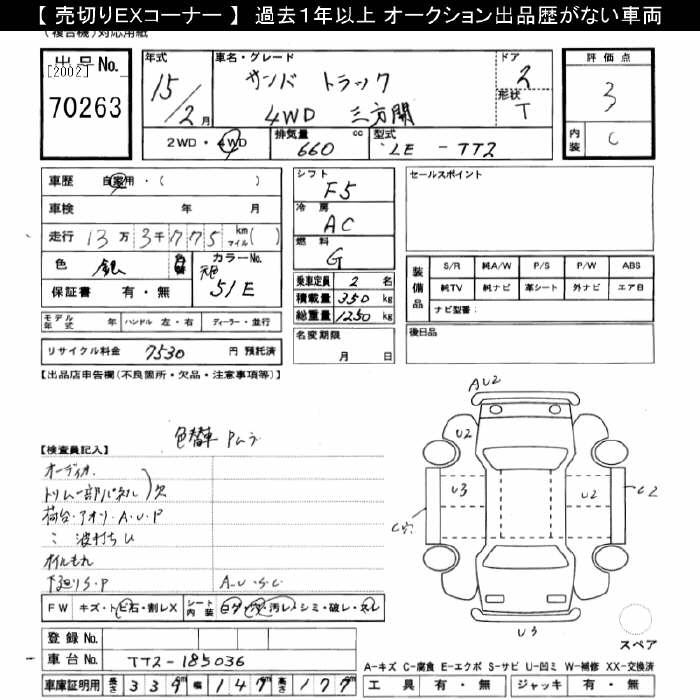 【 売切りEXコーナー 】 過去１年以上 オークション出品歴がない車両
(複合機)対応用紙
出品No.
[2002]
70263
年式
15/2月
車名・グレード
サンバ トラック
4WD 三方開
ドア
2
形状
T
評価点
3
内装
C
2WD・4WD
排気量
660 cc
型式
LE-TT2
車歴 自家用・( )
車検 年 月
走行 13万3千775 km マイル( )
色 銀
色替
カラーNo.
元色 51E
保証書 有・無
モデル年式 年 ハンドル 左・右 ディーラー・並行
リサイクル料金 7530 円 預託済
シフト
F5
冷房
AC
燃料
G
乗車定員 2 名
積載量 350 kg
総重量 1250 kg
名変期限
月 日
セールスポイント
装備品
S/R 純A/W P/S P/W ABS
純TV 純ナビ 革シート 外ナビ エアB
ナビ型番:
後日品
【出品店申告欄(不良箇所・欠品・注意事項等)】
色替車 Pムラ
【検査員記入】
オーディオ
トリム一部パネル)欠
荷台・アオリ・A・U・P
〃 波打ちU
オイルもれ
下廻りS・P
A・U・S・C
FW キズ・トビ石・割レX
シート内装 白グ・穴・汚レ・シミ・破レ・スレ
登録No.
車台No. TT2-185036
車庫証明用 長さ 339 幅 147 高さ 177
AU2
U2
U3
U2
C2
U3
スペア
A-キズ C-腐食 E-エクボ S-サビ U-凹ミ W-補修 XX-交換済
工具 有・無 ジャッキ 有・無